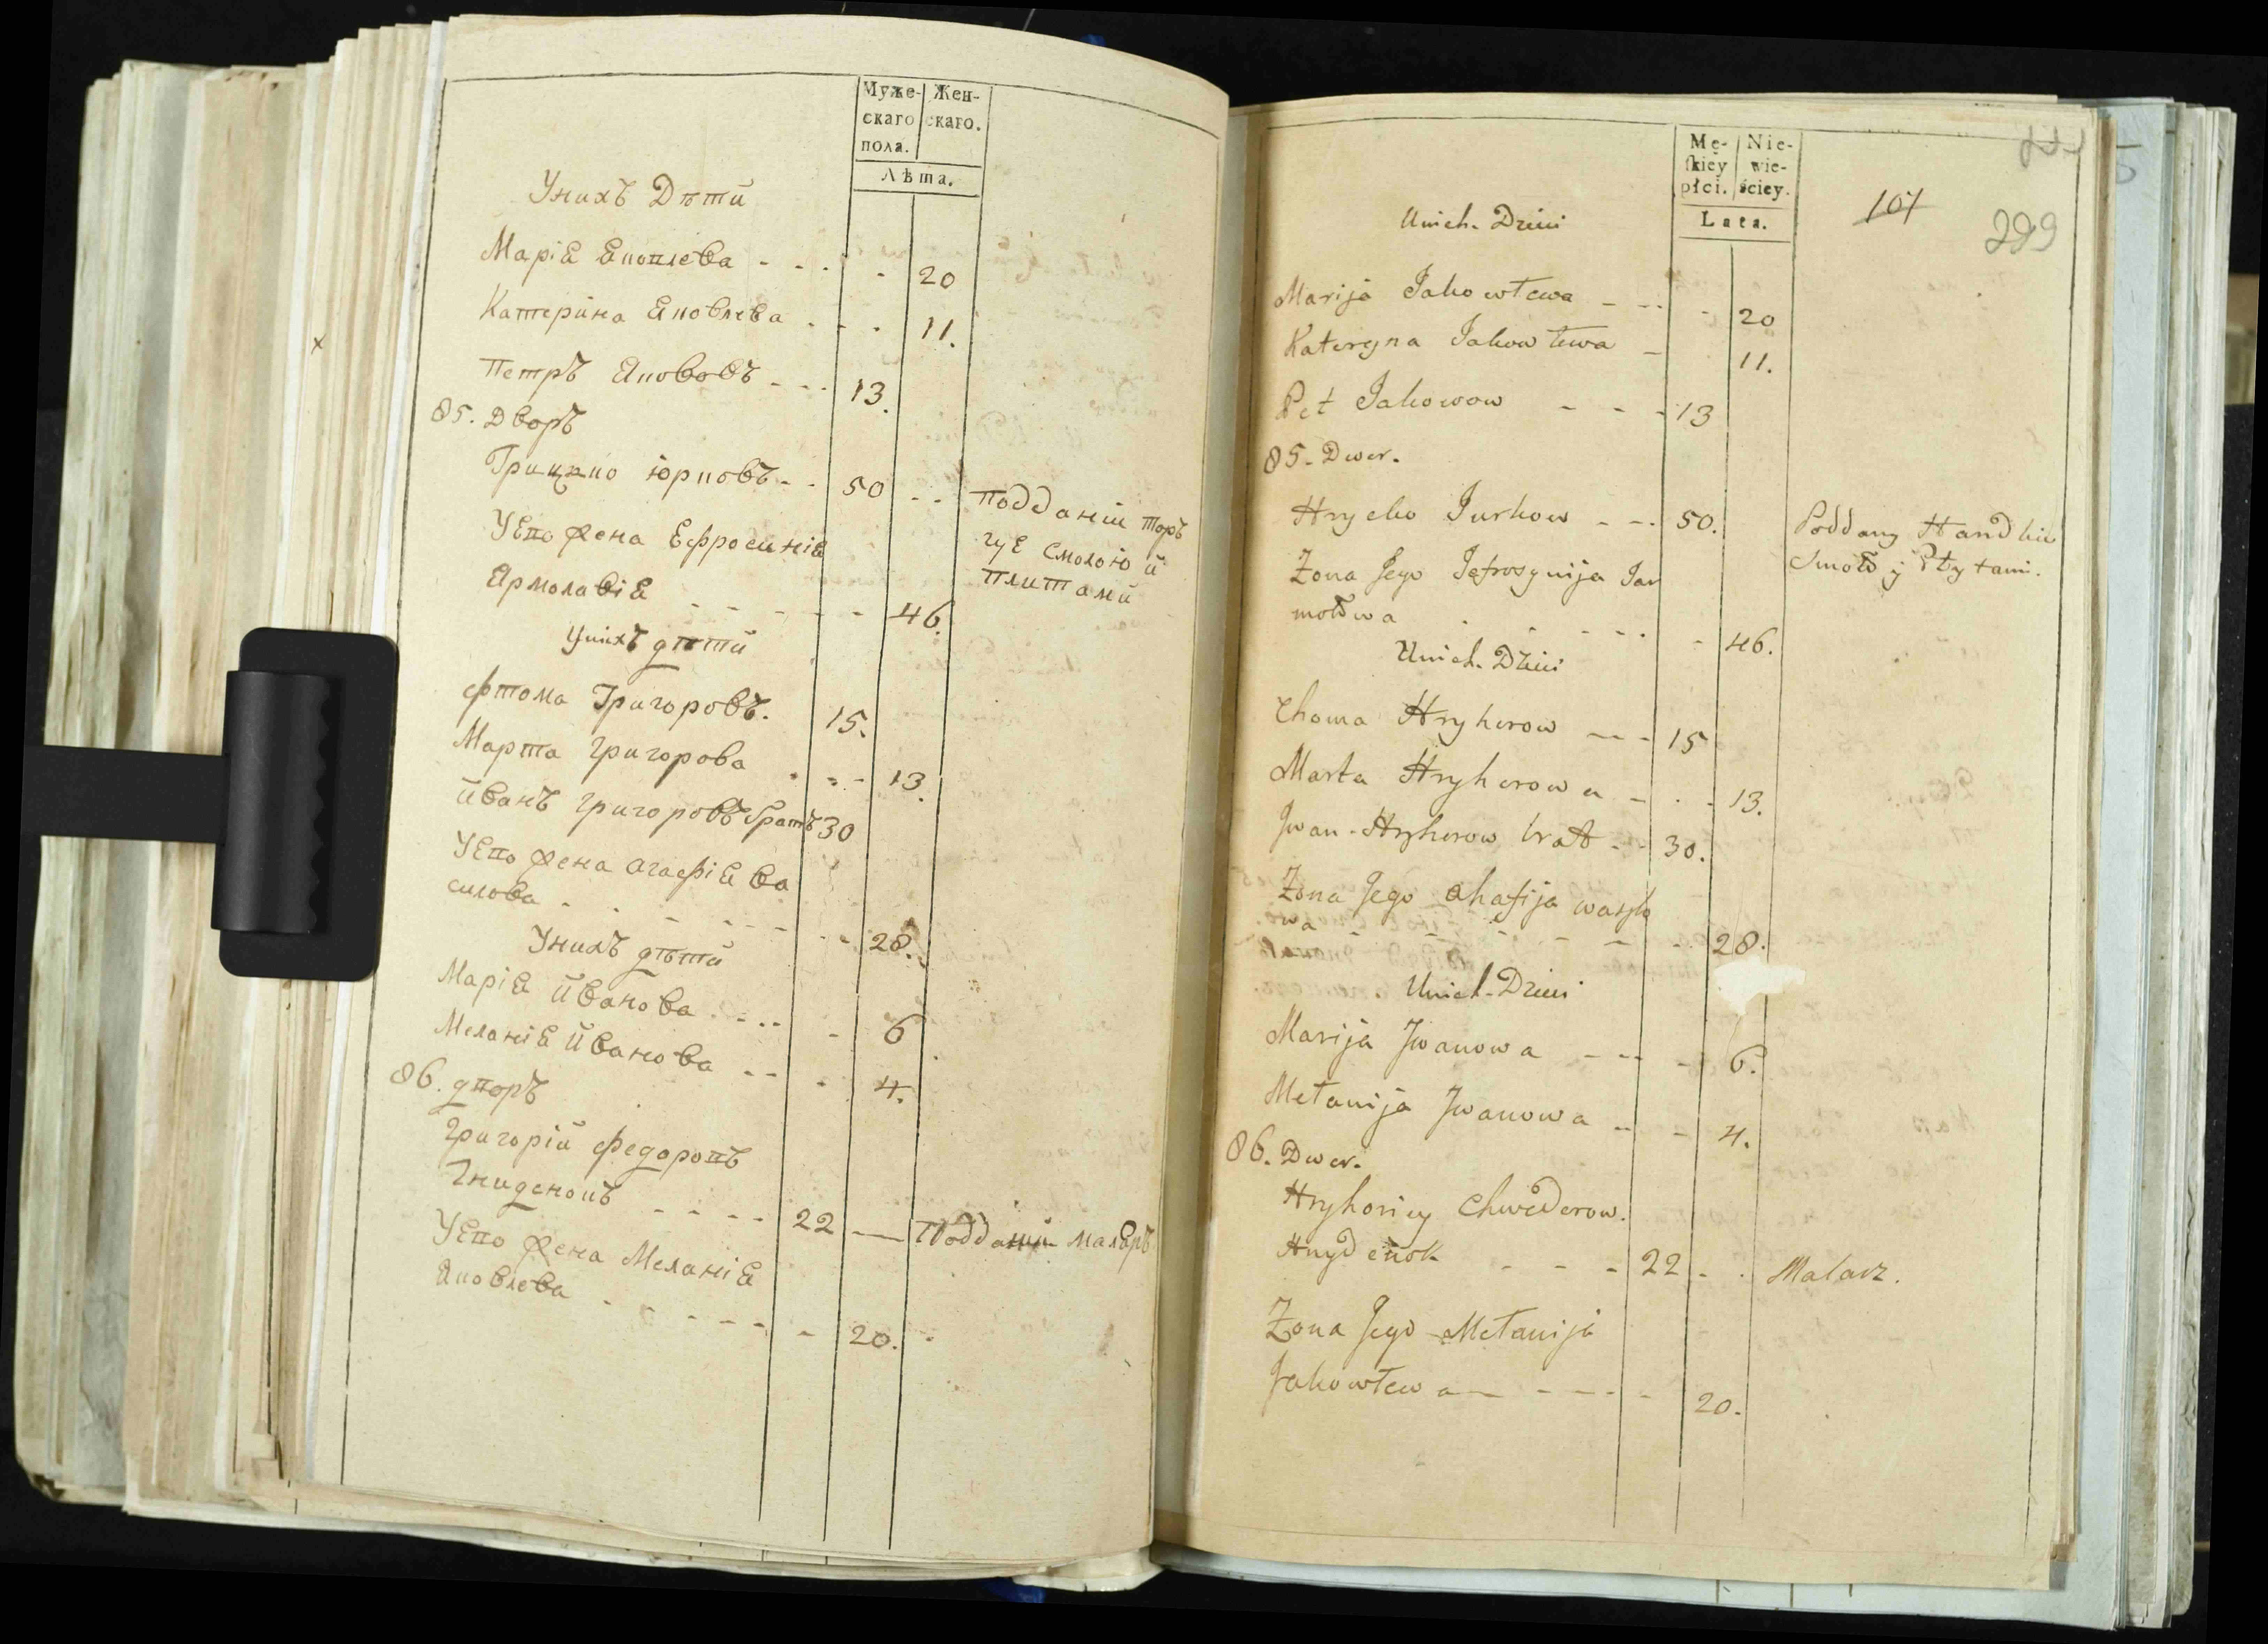 Муже- Жен-
скаго скаго.
пола.
Лѣта.
Унихъ Дѣти
Маріѣ Яковлева - - - - 20
Катерина Яковлева - - - 11.
Петръ Яковавъ - - - 13.
85. Дворъ
Грицко Юрковъ - - 50 - - Подданій торъ
гуѣ смолою и
плитами
Уѣво жена Ефросиніѣ
Ярмолавіѣ - - - - - - 46.
Унихъ дѣти
Фтома Григоровъ. 15.
Марта Григорова . - - 13.
Иванъ Григоровъ братъ 30
Уѣво жена Агафіѣ Ва
силова - - - - - - - - 28.
Унихъ дѣти
Маріѣ Иванова - - - - 6
Меланіѣ Иванова - - - 4.
86. Дворъ
Григорій Федоровъ
Гниденокъ - - - - 22 — Подданій маляръ
Уѣво жена Меланіѣ
Яковлева - - - - - - - 20.
Mę- Nie-
skiéy wie-
płci. ściey.
Lata.
107
229
Unich Dzieci
Marija Jakowlewa - - - - 20
Kateryna Jakowlewa - 11.
Pet Jakowow - - - 13
85. Dwor.
Hrycko Jurkow - - - 50. Poddany Handluie
Smołą y Płytami.
Zona Jego Jefrosynija Jar
mołowa - - - - - - - 46.
Unich Dzieci
Choma Hryhorow - - - 15
Marta Hryhorowa - - - 13.
Jwan Hryhorow brat - - 30.
Zona Jego Ahafija Wasyło
wa - - - - - - - 28.
Unich Dzieci
Marija Jwanowa - - - - 6.
Mełanija Jwanowa - - - 4.
86. Dwor.
Hryhoriey Chwedorow.
Hnydenok - - - 22 - - Malarz.
Zona Jego Mełanija
Jakowlewa - - - - - - 20.